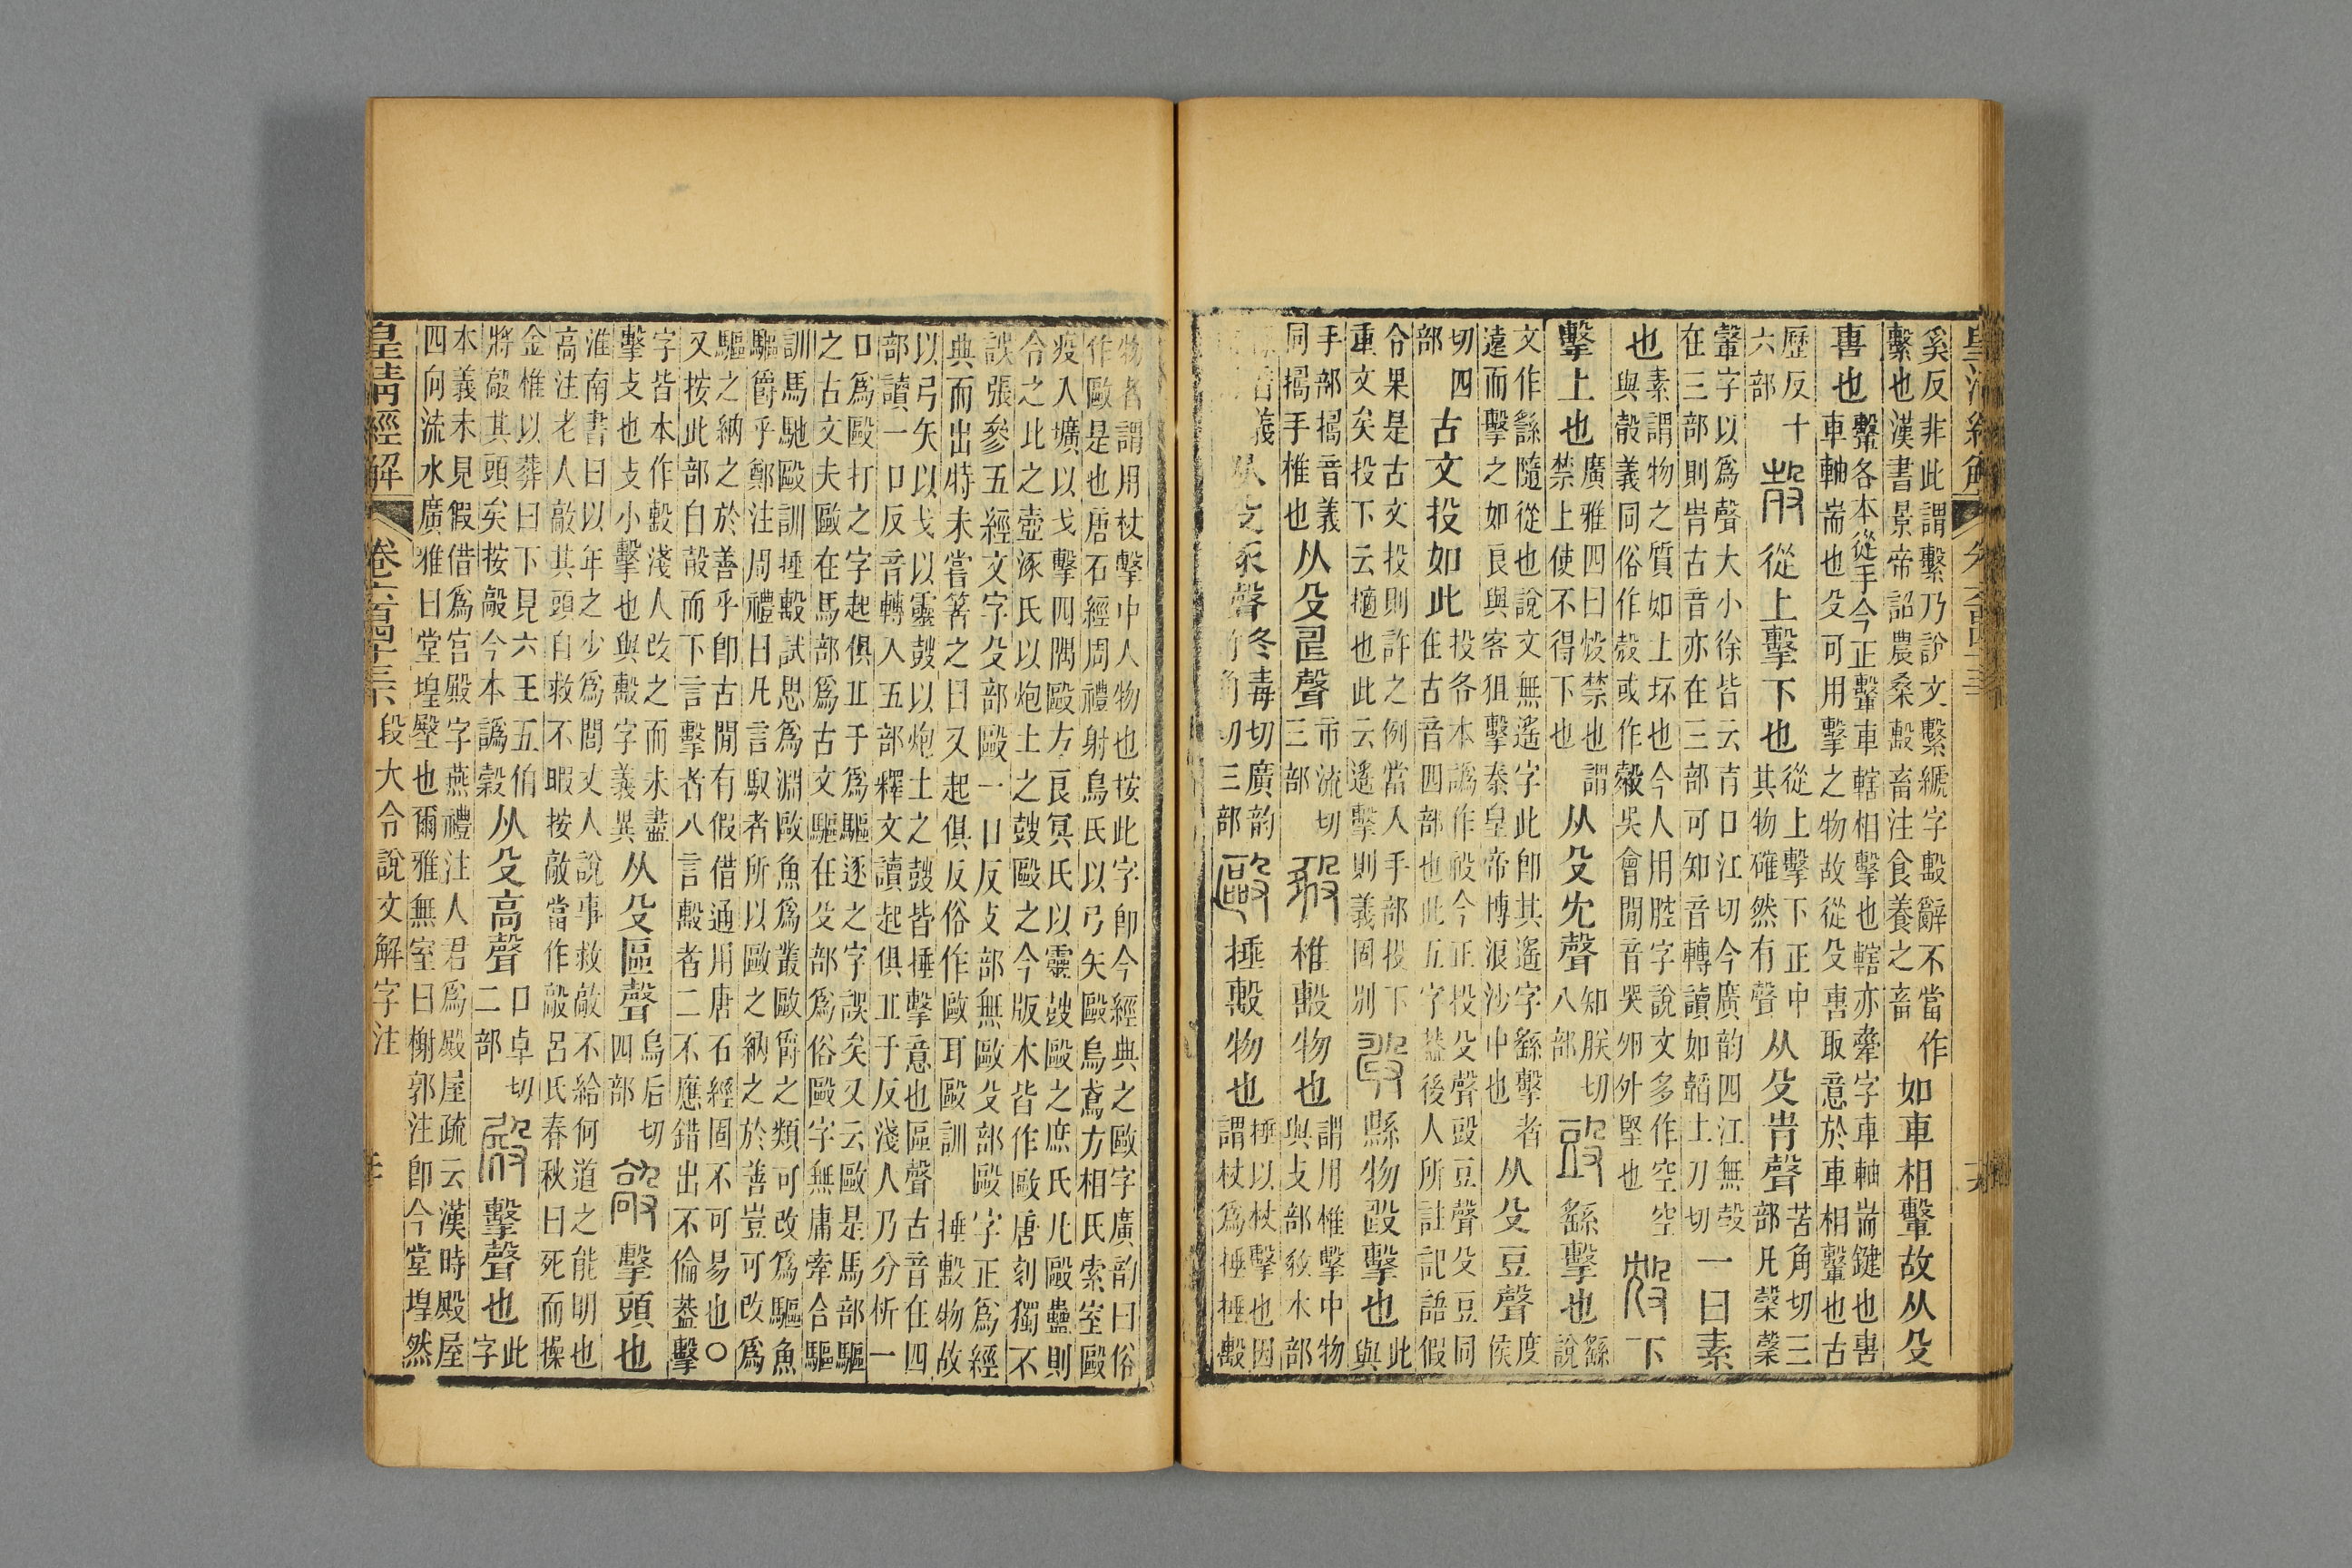 奚反非此謂繫乃說文繫𦃇字毄辭不當作繫也漢書景帝詔農桑毄畜注食養之畜如車相擊故从殳
軎也轚各本從手今正轚車轄相擊也轄亦舝字車軸耑鍵也軎車軸耑也殳可用擊之物故從殳軎取意於車相轚也古
歷反十六部㱿從上擊下也從上擊下正中其物確然有聲从殳𡉉聲苦角切三部凡
字以爲聲大小徐皆云靑口江切今廣韵四江無㱿在三部則𡉉古音亦在三部可知音轉讀如韜土刀切一曰素
也素謂物之質如土坏也今人用腔字說文多作空空與㱿義同俗作㲉或作吳會閒音哭卵外堅也㱽下
擊上也廣雅四曰㱽禁也謂禁上使不得下也从殳冘聲知朕切八部𣪌繇擊也繇說
文作繇隨從也說文無遙字此卽其遙字繇擊者遠而擊之如良與客狙擊秦皇帝博浪沙中也从殳豆聲度侯
切四部古文投如此投各本譌作今正投殳聲𣪌豆聲殳豆同在古音四部也此五字蓋後人所註記語假
令果是古文投則許之例當入手部投下重文矣投下云擿也此云遙擊則義固別縣物擊也此與
手部音義同手椎也从殳聲市流切三部椎毄物也謂用椎擊中物與攴部木部
義从殳豖聲冬毒切廣韵竹角切三部毆捶毄物也捶以杖擊也因謂杖爲捶捶毄
物者謂用杖擊中人物也按此字卽今經典之毆字廣韵曰俗作敺是也唐石經周禮射鳥氏以弓矢毆烏鳶方相氏索室毆
疫入壙以戈擊四隅毆方良冥氏以靈鼓毆之庶氏凡毆蠱則令之比之壺涿氏以炮土之鼓毆之今版本皆作敺唐刻獨不
誤張參五經文字殳部毆一口反攴部無敺殳部毆字正爲經典而出特未嘗箸之曰又起俱反俗作敺耳毆訓捶毄物故
以弓矢以戈以靈鼓以炮土之鼓皆捶擊意也區聲古音在四部讀一口反音轉入五部釋文讀起俱丘于反淺人乃分析一
口爲毆打之字起俱丘于爲驅逐之字誤矣又云敺是馬部驅之古文夫敺在馬部爲古文驅在攴部爲俗毆字無庸牽合驅
訓馬馳毆訓捶毄試思爲淵敺魚爲叢敺爵之類可改爲驅魚驅爵乎鄭注周禮曰凡言馭者所以敺之納之於善豈可改爲
驅之納之於善乎卽古閒有假借通用唐石經固不可易也○又按此部自㱿而下言擊者八言毄者二不應錯出不倫葢擊
字皆本作毄淺人改之而未盡擊攴也攴小擊也與毄字義異从殳區聲烏后切四部㱿擊頭也
淮南書曰以年之少爲閭丈人說事救敲不給何道之能明也高注老人敲其頭自救不暇按敲當作㱿呂氏春秋曰死而操
金椎以葬曰下見六王五伯將㱿其頭矣按㱿今本譌榖从殳高聲口卓切二部殿擊聲也此字
本義未見假借爲宮殿字燕禮注人君爲殿屋疏云漢時殿屋四向流水廣雅曰堂堭壂也爾雅無室曰榭郭注卽今堂堭然
皇清經解 卷六百四十三 段大令說文解字注